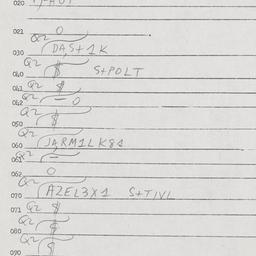 020
021 0
Q2
030 DA,S+1K
Q2
040 $ S+POLT
Q2
041 $
Q2
042 — 0
Q2
050 $
060 JA,RM1LK81
Q2
061 —
062 0
Q2
070 AZEL3X1 S+TIVL
071 Q2 $
080 Q2 $
Q2
090 $